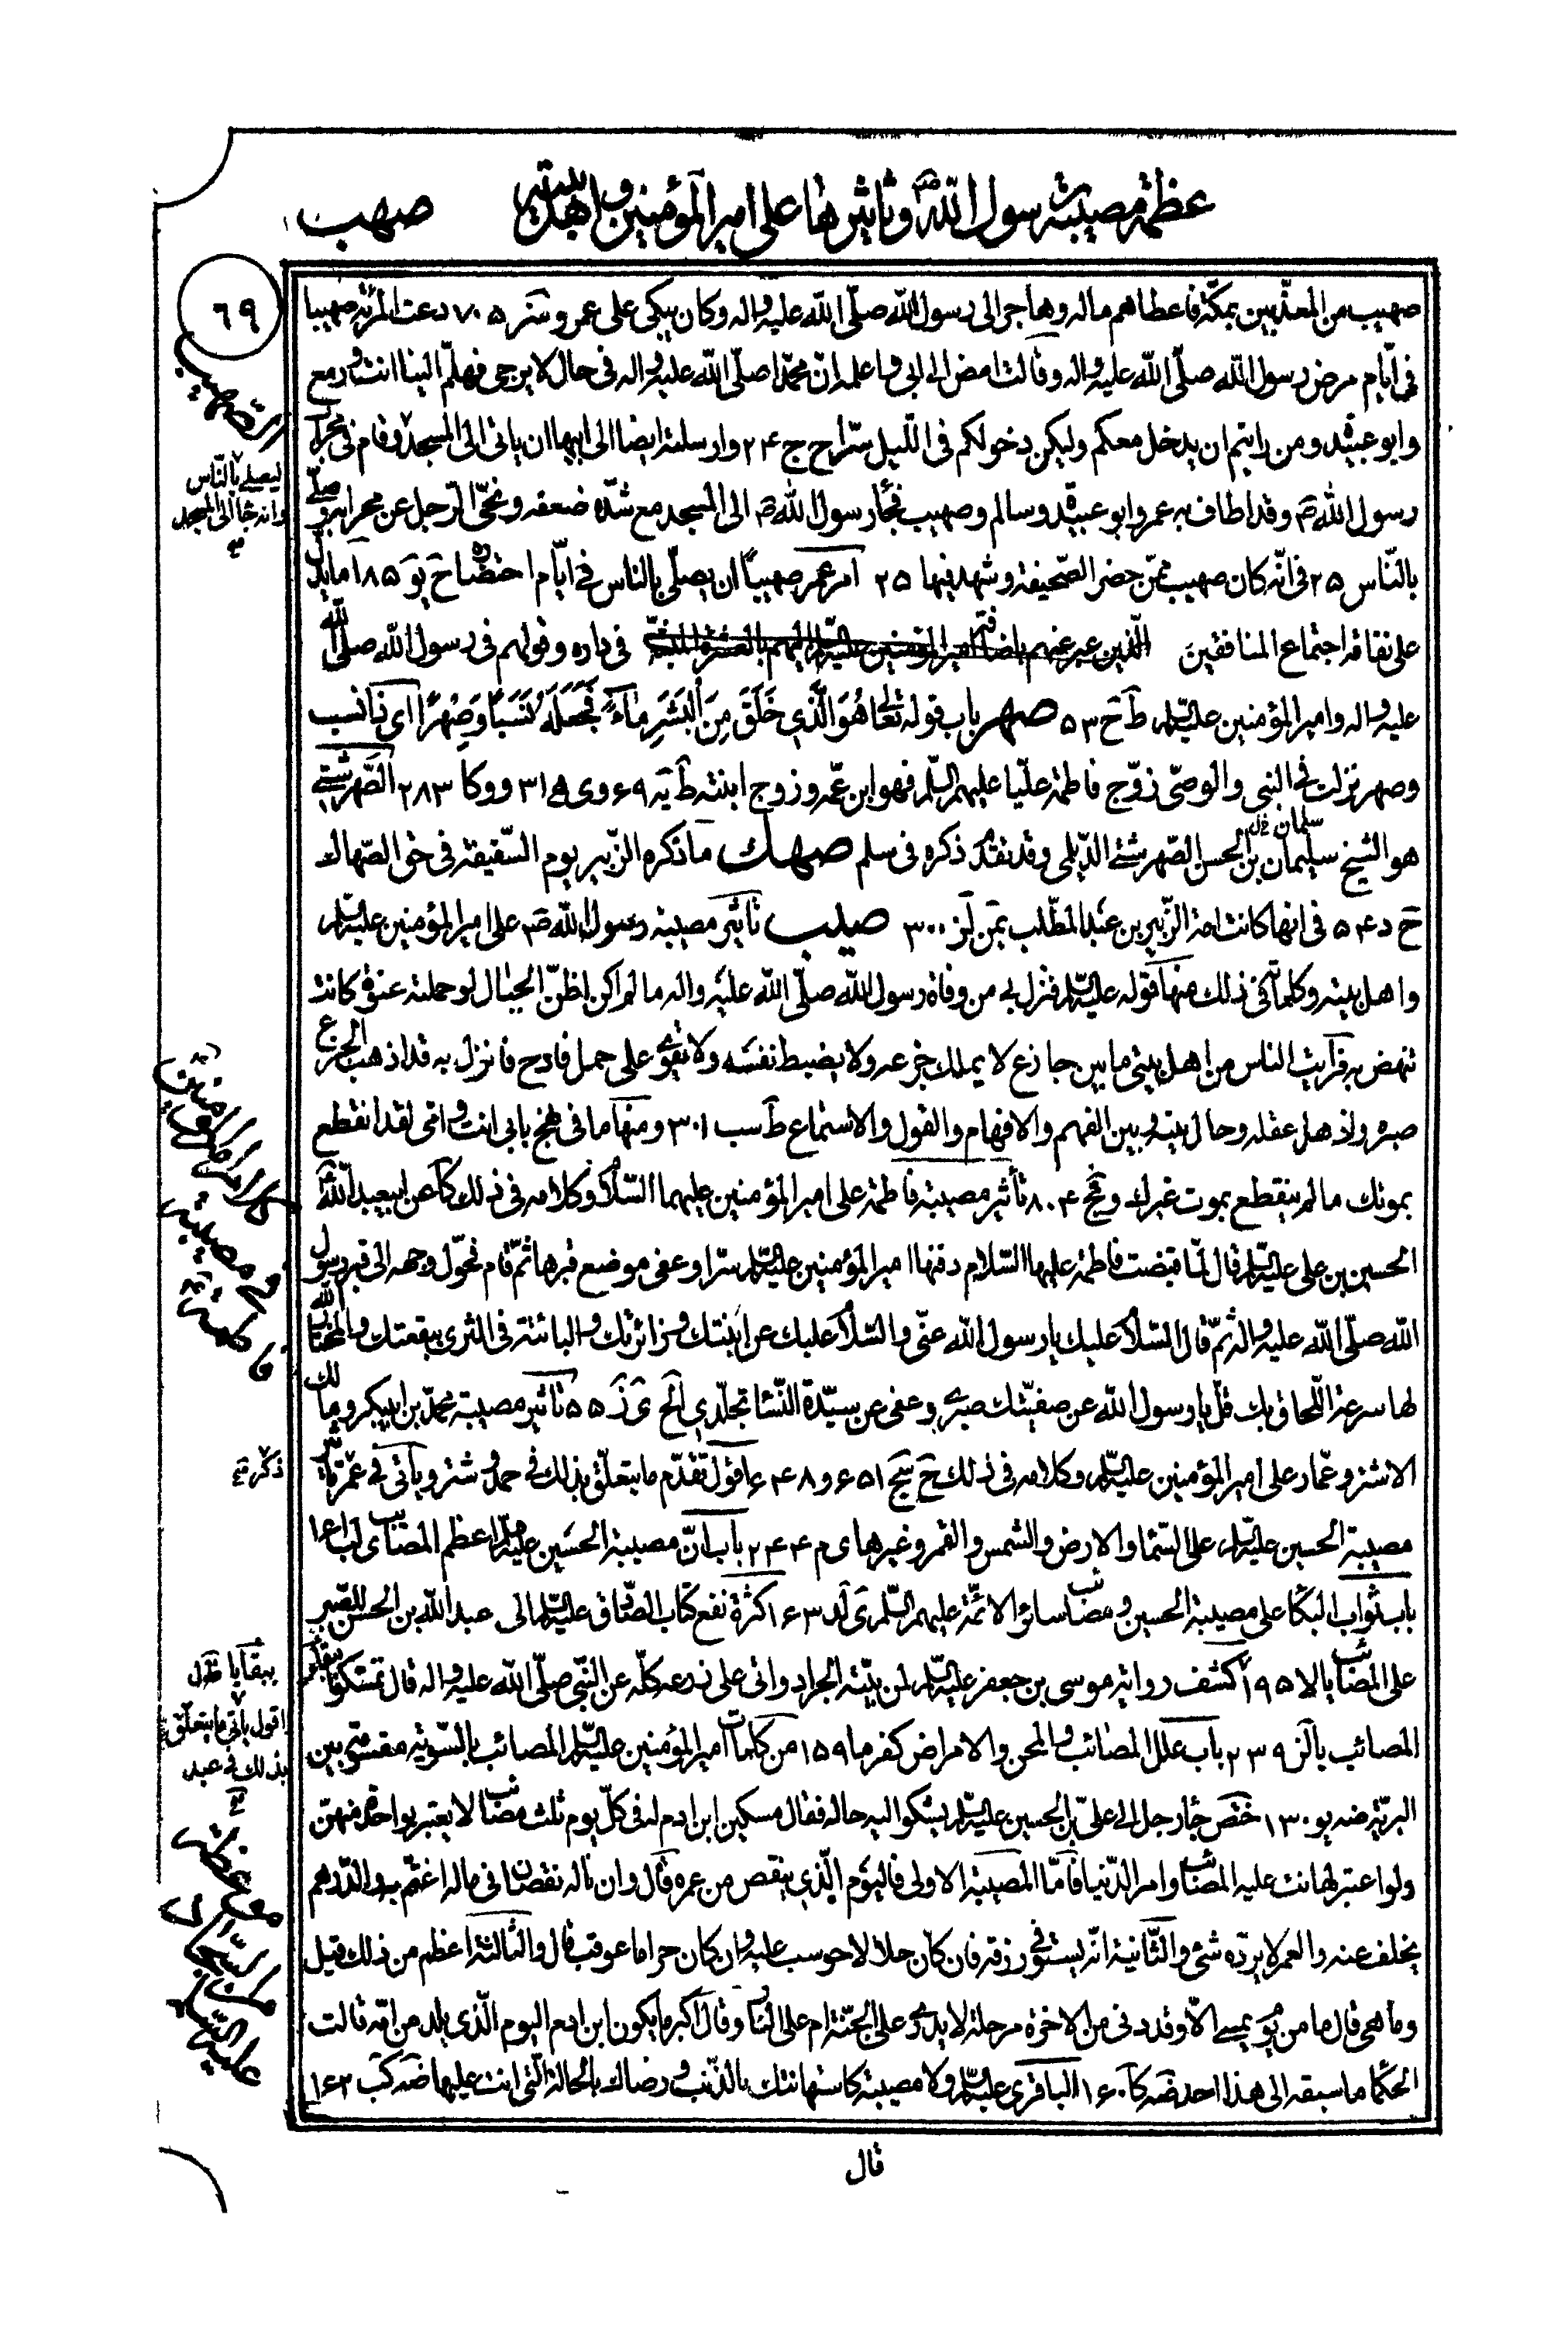 عظمة مصيبة رسول الله ص وتأثيرها على امير المؤمنين واهل بيته
صهب
٦٩
صهيب من المعذّبين بمكّة فاعطاهم ماله وهاجر الى رسول الله صلّى الله عليه واله وكان يبكى على عمر و سَر ٧٠٥ دعت المرئة صهيبا
فى ايّام مرض رسول الله صلّى الله عليه واله وقالت امض الى ابى واعلمه انّ محمّدا صلّى الله عليه واله فى حال لا يرجى فهلمّ الينا انت و مع
وابو عبيدة ومن رايتم ان يدخل معكم وليكن دخولكم فى اللّيل سرّا ح ج ٢۴ وارسلت ايضا الى ابيها ان ياتى الى المسجد وقام فى محراب
رسول الله ص وقد اطاف به عمر وابو عبيدة وسالم وصهيب فجاء رسول الله ص الى المسجد مع شدّة ضعفه ونحّى الرّجل عن محرابه وصلّى
بالنّاس ٢۵ فى انّه كان صهيب ممّن حضر الصّحيفة وشهد فيها ٢۵ امر عمر صهيبا ان يصلّى بالناس فى ايّام احتضاره ح يو ١٨۵ ما يدلّ
على نفاقه اجتماع المنافقين الّذين عبر عنهم فى داره وقولهم فى رسول الله صلى الله
عليه واله وامير المؤمنين عليه السّلم ط ح ۵٣ صهر باب قوله تعالى هُوَ الَّذِى خَلَقَ مِنَ الْبَشَرِ مَاءً فَجَعَلَهُ نَسَباً وَصِهْراً اى ذا نسب
وصهر نزلت فى النبى والوصىّ زوّج فاطمة عليّا عليهم السّلم فهو ابن عمّه وزوج ابنته ط يه ۶٩ و ى ه ٣١ و و كا ٢٨٣ الصّهرشتى
هو الشيخ سليمان بن الحسن الصّهرشتى الدّيلى وقد تقدّم ذكره فى سلم صهك ما ذكره الزّبير يوم السّقيفة فى حق الصّهاك
سلمان خ ل
ح د ۵۴ فى انها كانت امة الزّبير بن عبد المطّلب يمن لز ٣٠٠ صيب تاثير مصيبة رسول الله ص على امير المؤمنين عليه السّلم
واهل بيته وكلماته فى ذلك منها قوله عليه السّلم فنزل بى من وفاة رسول الله صلّى الله عليه واله ما لم اكن اظنّ الجبال لو حملته عنوة كانت
تنهض به فرايت الناس من اهل بيتى ما بين جازع لا يملك جزعه ولا يضبط نفسه ولا يقوى على حمل فادح ما نزل به قد اذهب الجزع
صبره واذهل عقله وحال بينه وبين الفهم والافهام والقول والاستماع ط سب ٣٠١ ومنها ما فى نهج بابى انت وامّى لقد انقطع
بموتك ما لم ينقطع بموت غيرك و نج ٨٠۴ تأثير مصيبة فاطمة على امير المؤمنين عليهما السّلام وكلامه فى ذلك كا عن ابيعبد الله
الحسين بن على عليه السّلم قال لمّا قبضت فاطمة عليها السّلام دفنها امير المؤمنين عليه السّلم سرّا وعفى موضع قبرها ثمّ قام فحوّل وجهه الى قبر رسول
الله صلّى الله عليه واله ثمّ قال السّلام عليك يا رسول الله عنّى والسّلام عليك عن ابنتك وزائرتك والبائتة فى الثرى ببقعتك والمختار الله
لها سرعة اللّحاق بك قلّ يا رسول الله عن صفيّتك صبرى وعفى عن سيّدة النّساء تجلّدى الخ ى ز ۵۵ تاثير مصيبة محمّد بن ابيبكر ومالك
الاشتر وعمّار على امير المؤمنين عليه السّلم وكلامه فى ذلك ح سج ۶۵١ و ۶۴٨ اقول تقدّم ما يتعلّق بذلك فى حمد وشتر وياتى فى عمر تاثير
مصيبة الحسين عليه السّلم على السّماء والارض والشمس والقمر وغيرها ى م ٢۴۴ باب انّ مصيبة الحسين عليه السّلم اعظم المصائب ى لب ١۶١
باب ثواب البكاء على مصيبة الحسين ومصائب سائر الائمّة عليهم السّلم ى لد ١۶٣ كثرة نفع كتاب الصّادق عليه السّلم الى عبد الله بن الحسن للصّبر
على المصائب يا لا ١٩۵ كشف رواية موسى بن جعفر عليه السّلم لمن بيّته الجراد واتى على زرعه كلّه عن النّبى صلّى الله عليه واله قال تمسّكوا ببقاء
المصائب يا لز ٢٣٩ باب علل المصائب والمحن والامراض كفر ما ١۵٩ من كلمات امير المؤمنين عليه السّلم المصائب بالسّوية مقسومة بين
البريّة ضه يو ١٣٠ ختص جاء رجل الى علىّ بن الحسين عليه السّلم يشكو اليه حاله فقال مسكين ابن ادم له فى كلّ يوم ثلث مصائب لا يعتبر بواحدة منهنّ
ولو اعتبر لهانت عليه المصائب وامر الدّنيا فامّا المصيبة الاولى فاليوم الّذى ينقص من عمره قال وان ناله نقصان فى ماله اغتمّ به والدّرهم
يخلف عنه والعمر لا يردّه شئ والثّانية انّه يستوفى رزقه فان كان حلالا حوسب عليه وان كان حراما عوقب قال والثّالثة اعظم من ذلك قيل
وما هى قال ما من يوم يمسى الّا وقد دنى من الاخرة مرحلة لا يدرى على الجنّة ام على النّار وقال اكبر ما يكون ابن ادم اليوم الّذى يلد من امّه قالت
الحكماء ما سبقه الى هذا احد ضه كا ١۶٠ الباقرى عليه السّلم ولا مصيبة كاستهانتك بالذّنب ورضاك بالحالة الّتى انت عليها ضه كب ١۶٣
ليصلّى بالنّاس
وانه جاء الى المسجد
كلام امير المؤمنين
فى مصيبة
فاطمة
ذكره
ببقايا خ ل
اقول ياتى ما يتعلّق
بذلك فى عبد
موعظة
من السّجاد
عليه السّلم
قال